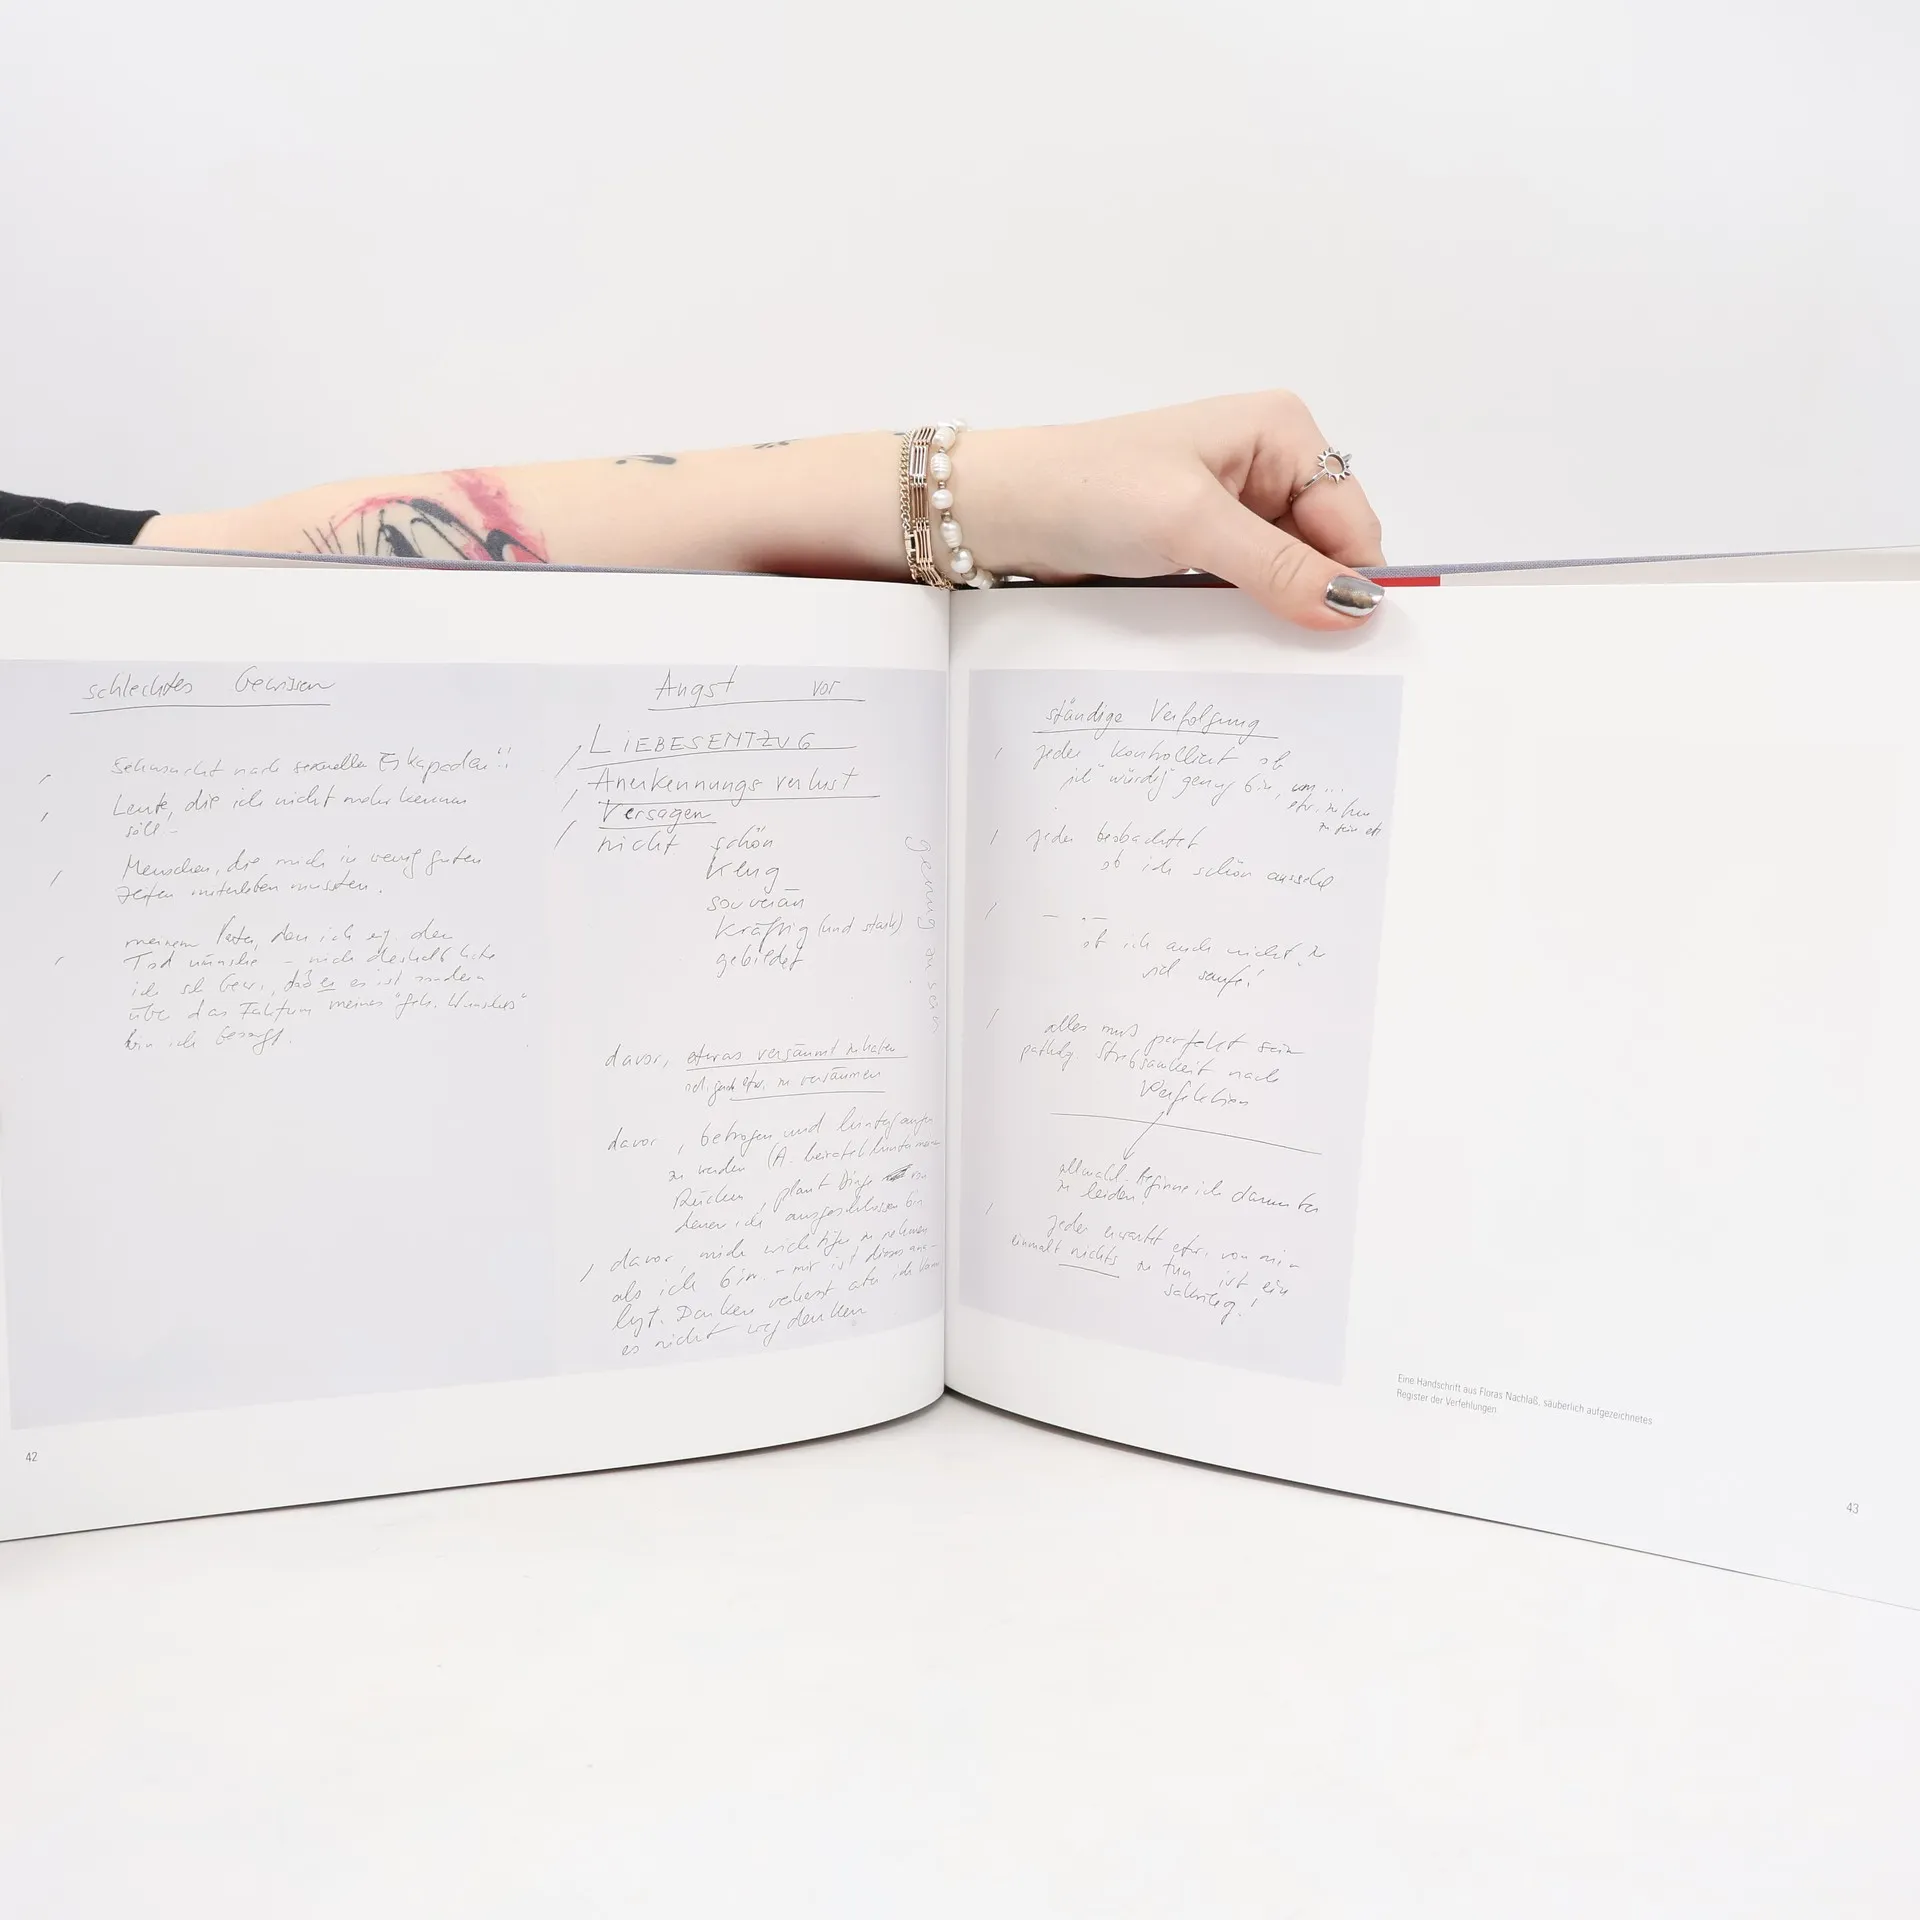 schlechtes Gewissen
Sehnsucht nach sexuellen Eskapaden!!
Leute, die ich nicht mehr kennen
soll -
Menschen, die mich in wenig guten
Zeiten miterleben mussten.
meinem Vater, dem ich eig. den
Tod wünsche - nich deshalb habe
ich schl. Gew., daß es ist sondern
über das Faktum meines "geh. Wunsches"
bin ich besorgt.
Angst vor
LIEBESENTZUG
Anerkennungsverlust
Versagen
nicht schön
klug
souverän
kräftig (und stark)
gebildet
genug zu sein
davor, etwas versäumt zu haben
od. grad etw. zu versäumen
davor, betrogen und hintergangen
zu werden (A. heiratet hinter meinem
Rücken, plant Dinge von
denen ich ausgeschlossen bin
davor, mich wichtiger zu nehmen
als ich bin. - mir ist dieses
Denken verhasst aber ich kann
es nicht weg denken
ständige Verfolgung
jeder kontrolliert ob
ich "würdig" genug bin, um...
etw. zu tun
zu sein etc
jeder beobachtet
ob ich schön aussehe
— . —
ob ich auch nicht zu
viel saufe!
alles muß perfekt sein
patholg. Strebsamkeit nach
Perfektion
allmähl. beginne ich darunter
zu leiden!
jeder erwartet etw. von mir
einmal nichts zu tun ist ein
Sakrileg!
Eine Handschrift aus Floras Nachlaß, säuberlich aufgezeichnetes
Register der Verfehlungen
42
43